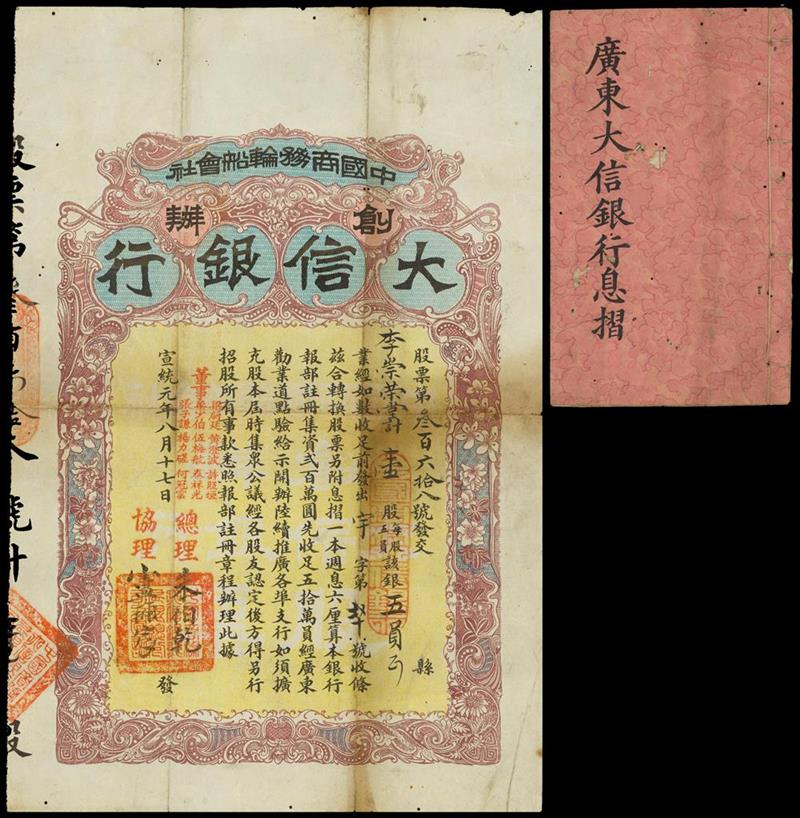 中國商務輪船會社
創辦
大信銀行
股票第叁百六拾八號發交
縣
李崇荣堂計壹股每股五員該銀五員正
業經如數收足前發出宇字第號收條
茲合轉換股票另附息摺一本週息六厘算本銀行
報部註冊集資弍百萬圓先收足五拾萬員經廣東
勸業道點驗給示開辦陸續推廣各埠支行如須擴
充股本屆時集衆公議經各股友認定後方得另行
招股所有事款悉照報部註冊章程辦理此據
董事
黃澄波
伍梅航
張子謙 楊力磋 何冠雲
總理
協理
宣統元年八月十七日
發
股票第
號計
股
廣東大信銀行息摺